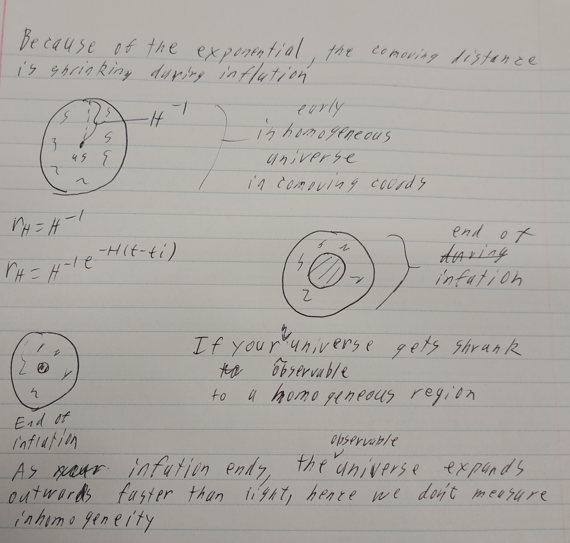 Because of the exponential, the comoving distance
is shrinking during inflation
H⁻¹
early
inhomogeneous
universe
in comoving coords
r_H = H⁻¹
r_H = H⁻¹ e^{-H(t-ti)}
end of
during
infation
If your universe gets shrank
observable
to a homogeneous region
End of
inflation
observable
As infation ends, the universe expands
outwards faster than light, hence we don't measure
inhomogeneity